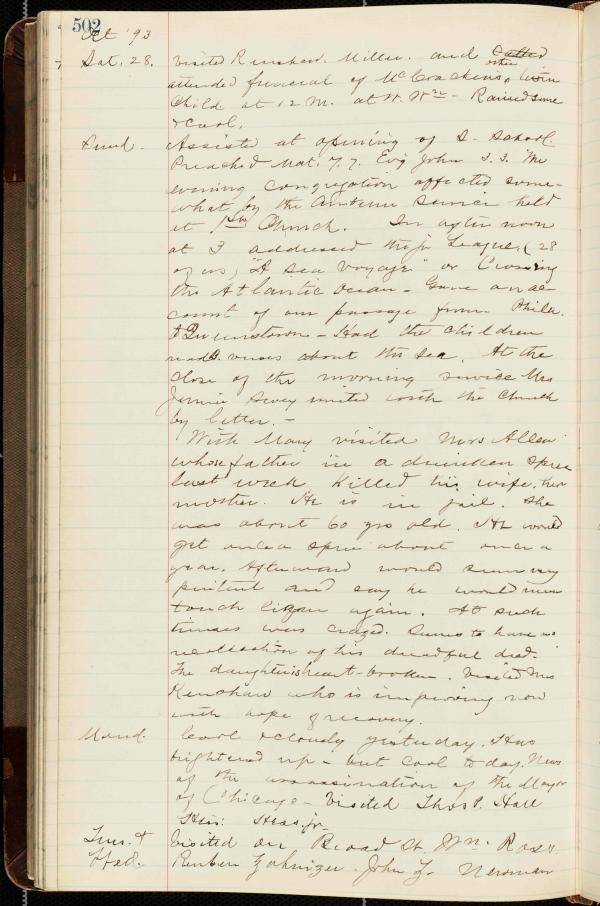 502
Oct '93
Sat. 28. Visited Renshaw. Miller. and Called
attended funeral of McCrackins, twin other
Child at 12 M. at H. Wm - Rained some
& cool.
Sund. Assisted at opening of S- School.
Preached Mat. 7.7. Evg John 3.3. The
evening congregation affected some-
what by the service held
at 1st Church. In afternoon
at 3 addressed the Jr League, (28
of us) "A Sea Voyage" or Crossing
the Atlantic Ocean - Gave an ac-
count of our passage from Phila.
to Queenstown - Had the children
read B. verses about the Sea. At the
close of the morning service Mrs
Jennie united with the Church
by letter. -
With Mary visited Mrs Allen
whose father in a drunken spree
last week killed his wife, her
mother. He is in jail. She
was about 60 yrs old. He would
get on a spree about once a
year. Afterward would seem very
penitent and say he would never
touch liquor again. At such
times was crazed. Seems to have no
recollection of his dreadful deed.
The daughter is heart-broken. Visited Mrs
Renshaw who is improving now
with hope of recovery.
Mond. Cool & cloudy yesterday. Has
brightened up - but cool to day. News
of the assassination of the Mayor
of Chicago - Visited Thos P. Hall
jr.
Tues. & Visited on Broad St. Wm. Ross.
Wed. Reuben John Z. Newman